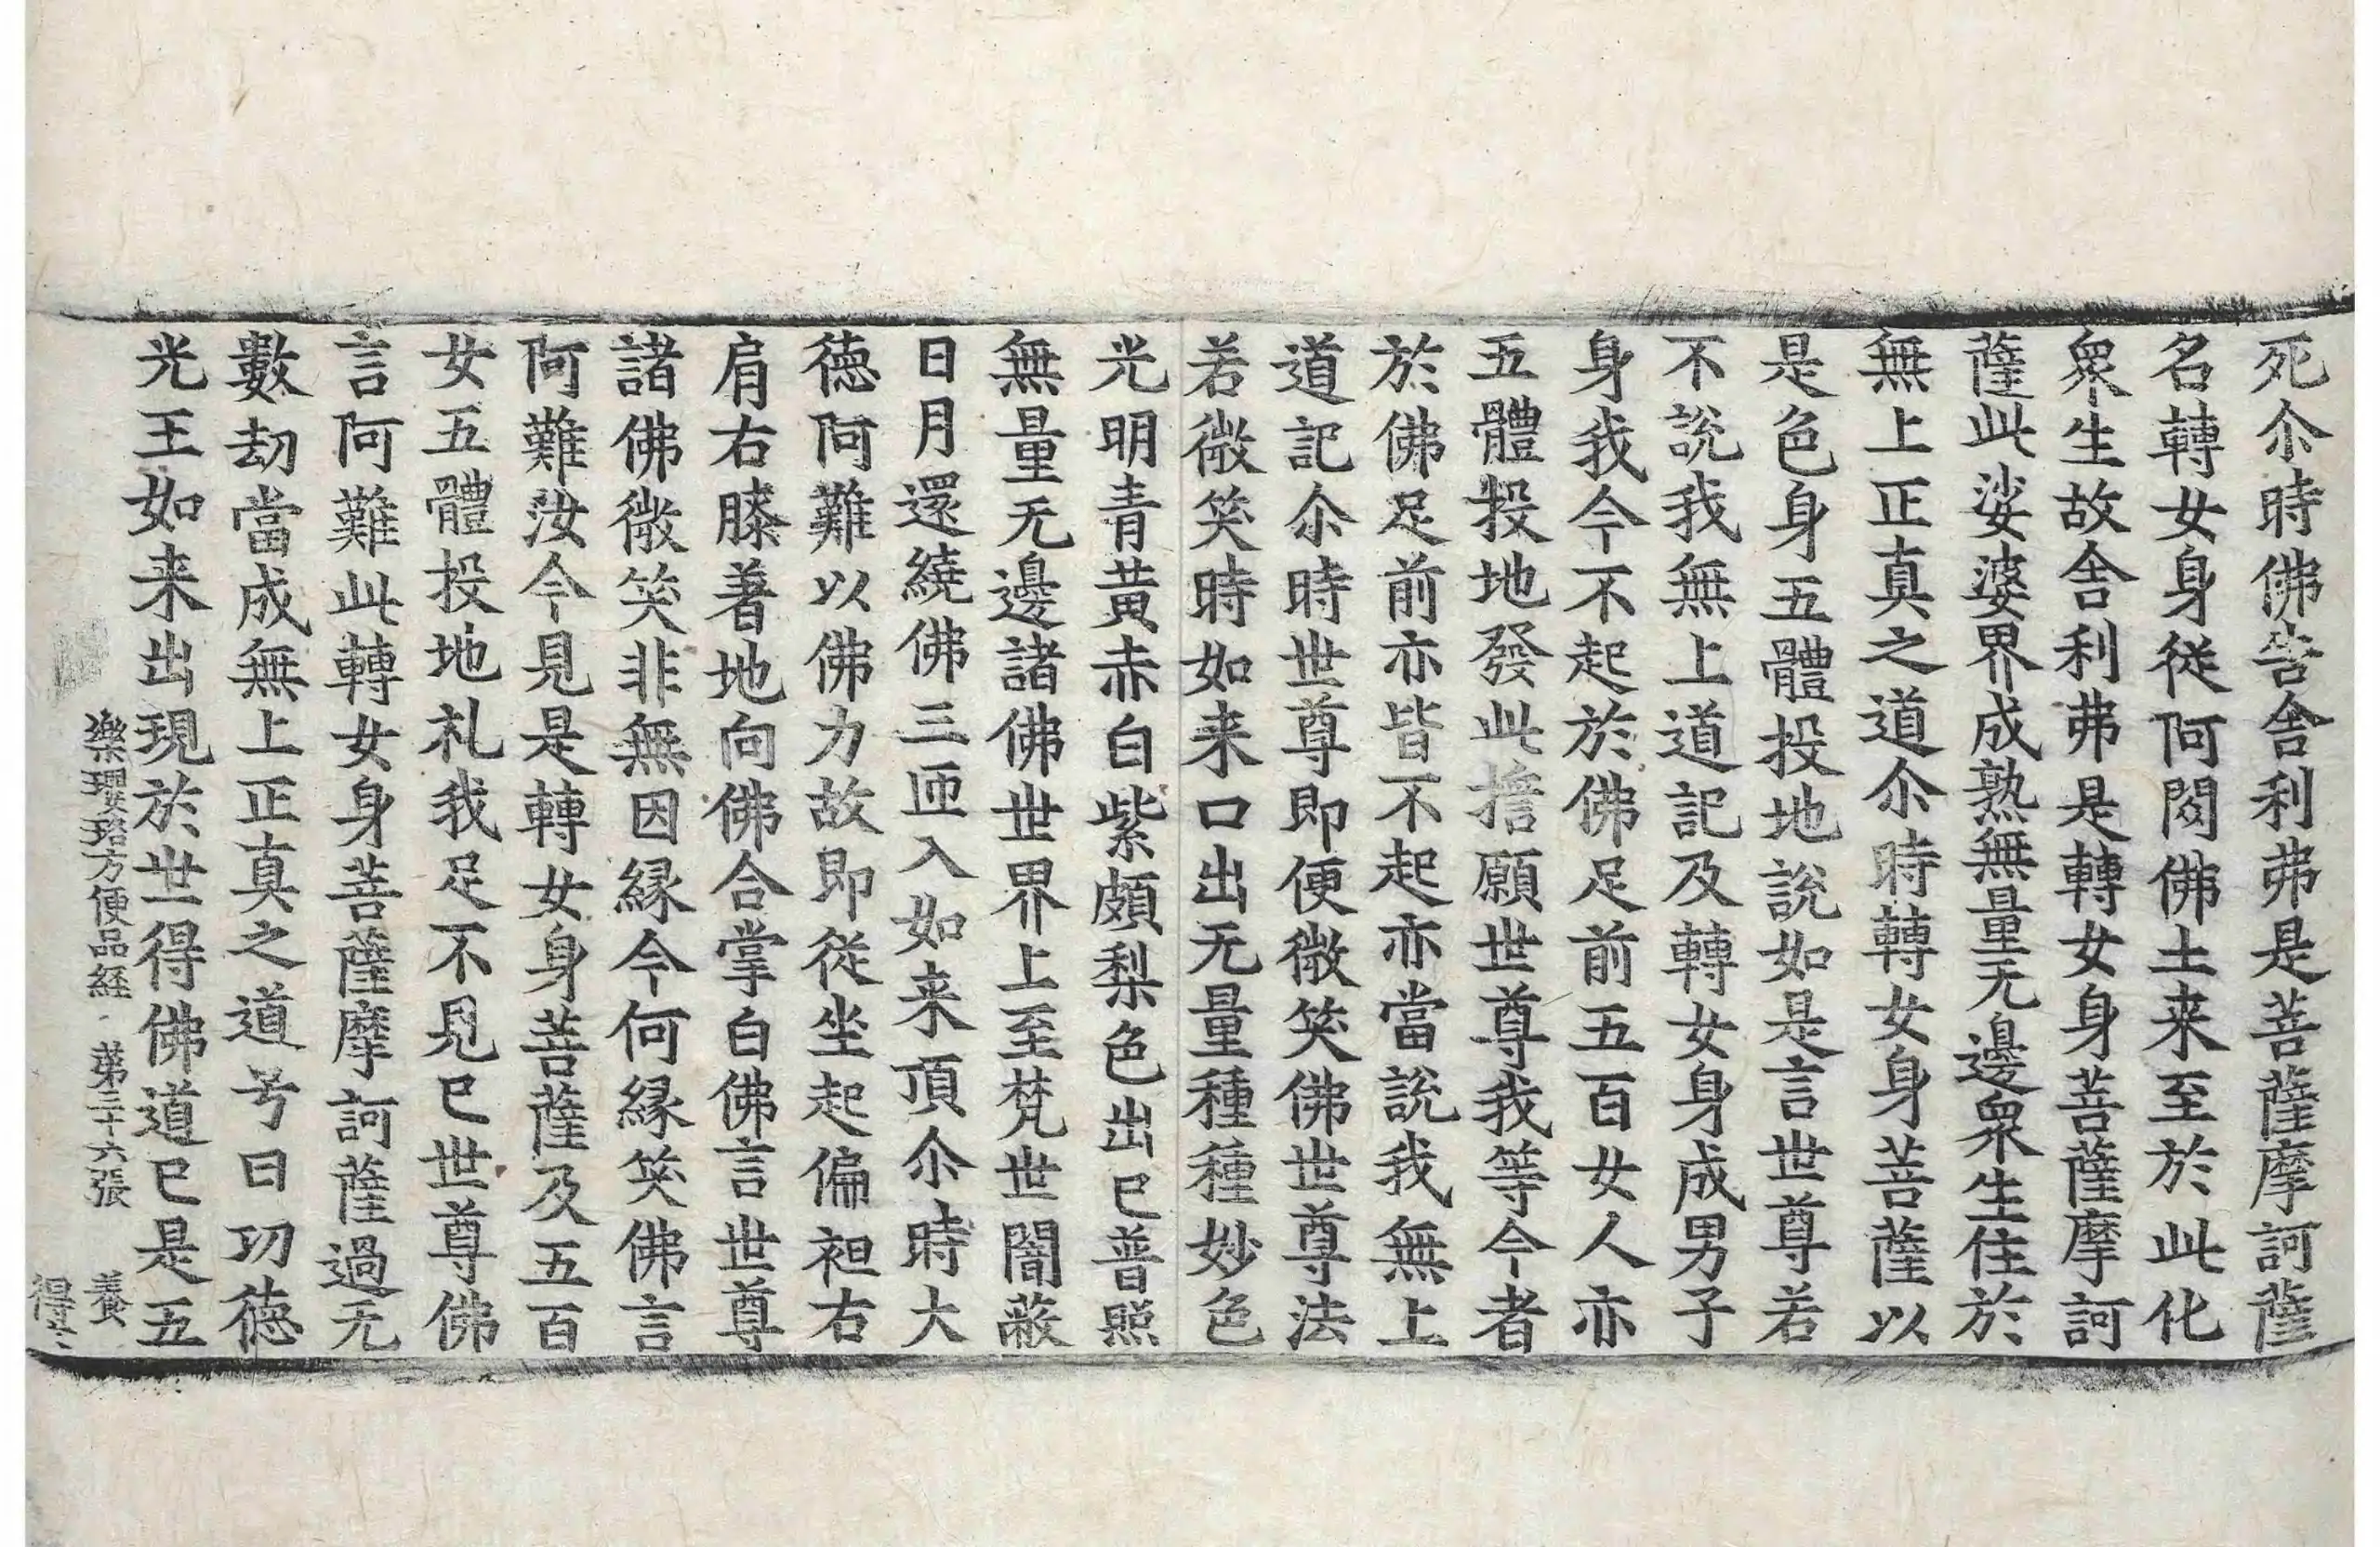 死尒時佛告舎利弗是菩薩摩訶薩
名轉女身從阿閦佛土来至於此化
衆生故舎利弗是轉女身菩薩摩訶
薩此娑婆界成熟無量无邊衆生住於
無上正真之道尒時轉女身菩薩以
是色身五體投地說如是言世尊若
不說我無上道記及轉女身成男子
身我今不起於佛足前五百女人亦
五體投地發此擔願世尊我等今者
於佛足前亦皆不起亦當說我無上
道記尒時世尊即便微笑佛世尊法
若微笑時如来口出无量種種妙色
光明青黃赤白紫頗梨色出已普照
無量无邊諸佛世界上至梵世闇蔽
日月還繞佛三迊入如来頂尒時大
德阿難以佛力故即從坐起偏袒右
肩右膝著地向佛合掌白佛言世尊
諸佛微笑非無因緣今何緣笑佛言
阿難汝今見是轉女身菩薩及五百
女五體投地礼我足不見已世尊佛
言阿難此轉女身菩薩摩訶薩過无
數劫當成無上正真之道号曰功德
光王如来出現於世得佛道已是五
樂瓔珞方便品經 第三十六張 養
得